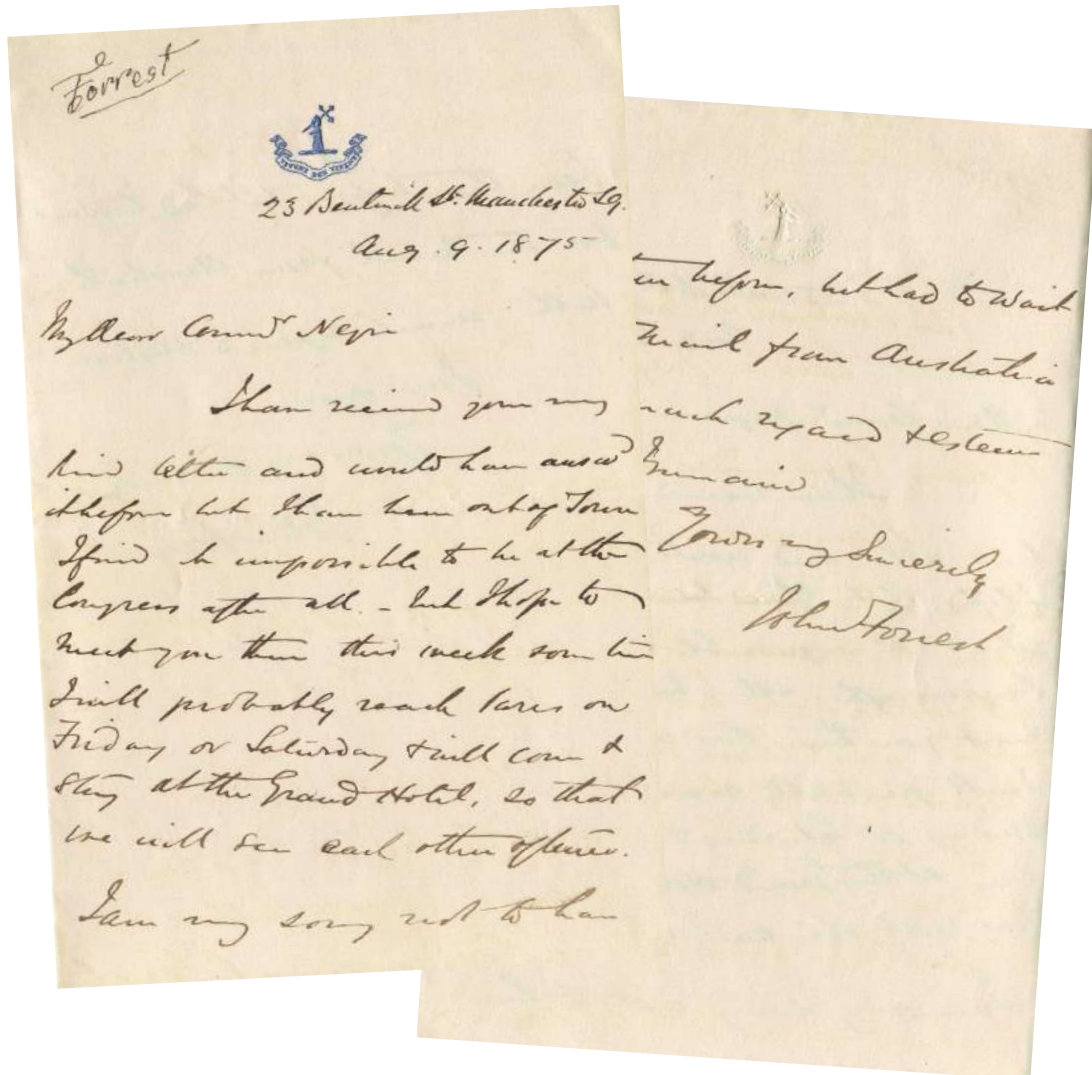 Forrest
VIVUNT DUM VIRENT
23 Bentinck St. Manchester Sq.
Aug. 9. 1875
My dear Commdr Negri
I have received your very
kind letter and would have answd
it before but I have been out of Town
I find it impossible to be at the
Congress after all. - but I hope to
meet you then this week some time
I will probably reach Paris on
Friday or Saturday & will come &
stay at the Grand Hotel, so that
we will see each other oftener.
I am very sorry not to have
before, but had to wait
mail from Australia
much regard & esteem
I remain
Yours very Sincerely
John Forrest